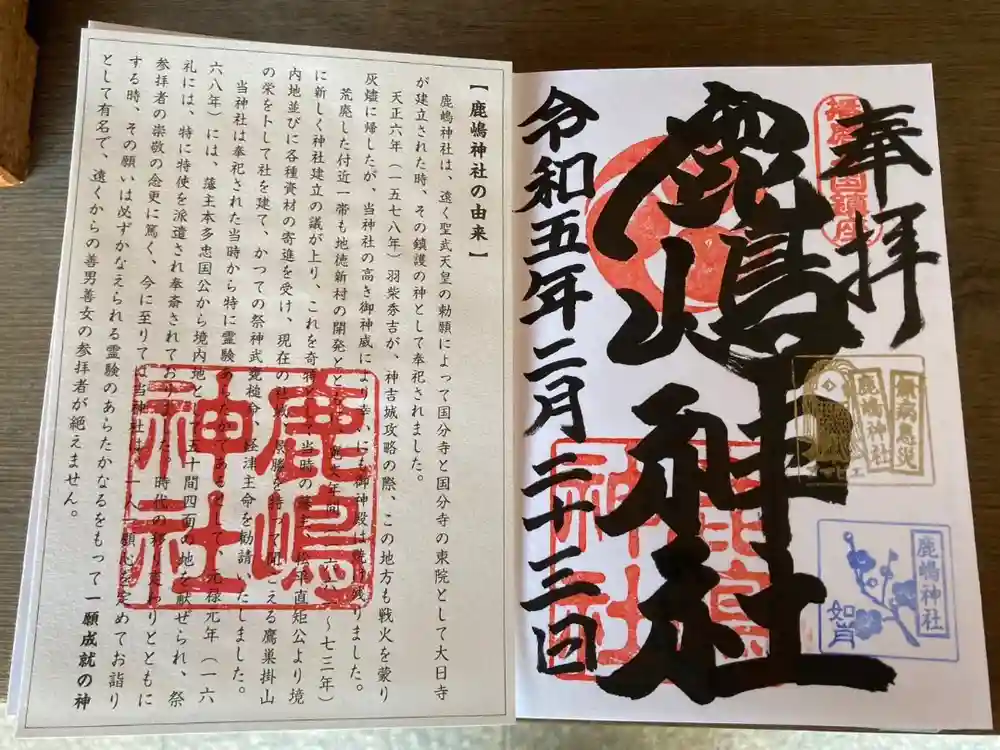 奉拝
播磨国鎮座
鹿嶋神社
鹿嶋神社
令和五年二月二十三日
無病息災
鹿嶋神社
鹿嶋神社
如月
【鹿嶋神社の由来】
鹿嶋神社は、遠く聖武天皇の勅願によって国分寺と国分寺の東院として大日寺
が建立された時、その鎮護の神として奉祀されました。
天正六年(一五七八年)羽柴秀吉が、神吉城攻略の際、この地方も戦火を蒙り
灰燼に帰したが、当神社の高き御神威により幸いにも御神殿は焼け残りました。
荒廃した付近一帯も地徳新村の開発とともに、寛文年間(一六六一~七三年)
に新しく神社建立の議が上り、これを奇特として当時の藩主 松平直矩公より境
内地並びに各種資材の寄進を受け、現在の社域、景勝を持って聞こえる鷹巣掛山
の栄を卜して社を建て、かつての祭神武甕槌命、経津主命を勧請いたしました。
当神社は奉祀された当時から特に霊験あらたかであるとして、元禄元年(一六
六八年)には、藩主本多忠国公から境内地として五十間四面の地を献ぜられ、祭
礼には、特に特使を派遣され奉斎されておりました。時代の移り変わりとともに
参拝者の崇敬の念更に篤く、今に至りては当神社は、一人一願心を定めてお詣り
する時、その願いは必ずかなえられる霊験のあらたかなるをもって一願成就の神
として有名で、遠くからの善男善女の参拝者が絶えません。
鹿嶋神社